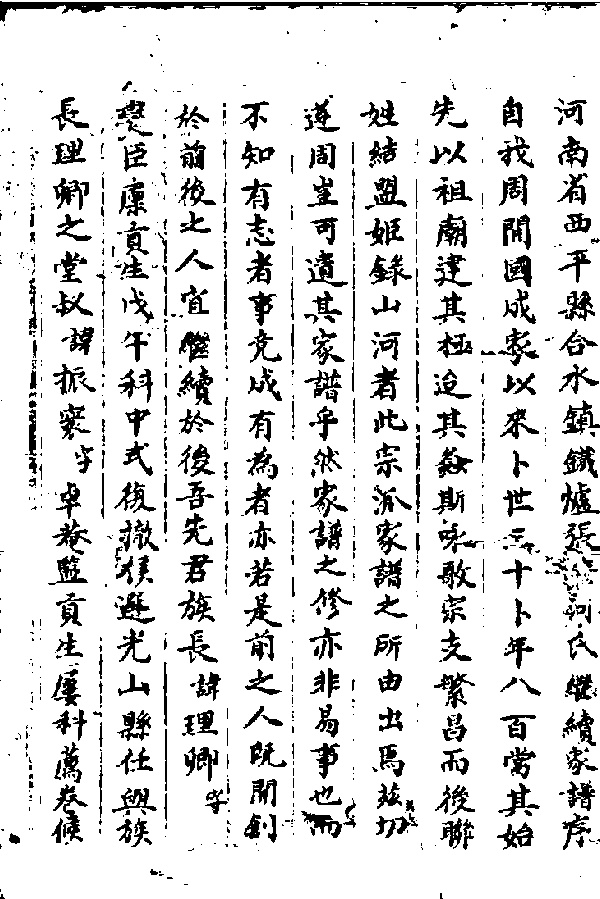 河南省西平縣合水鎮鐵爐張 河氏繼續家譜序
自我周開國成家以來卜世三十卜年八百當其始
先以祖廟建其極迨其螽斯咏歌宗支繁昌而後聯
姓結盟姬錄山河者此宗派家譜之所由出焉玆切
遵周豈可遺其家譜乎然家譜之修亦非易事也而
不知有志者事竟成有為者亦若是前之人既開創
於前後之人宜繼續於後吾先君族長諱理卿字
爕臣廩貢生戊午科中式復撤候選光山縣任與族
長理卿之堂叔諱振寰字卓菴監貢生屢科薦卷候